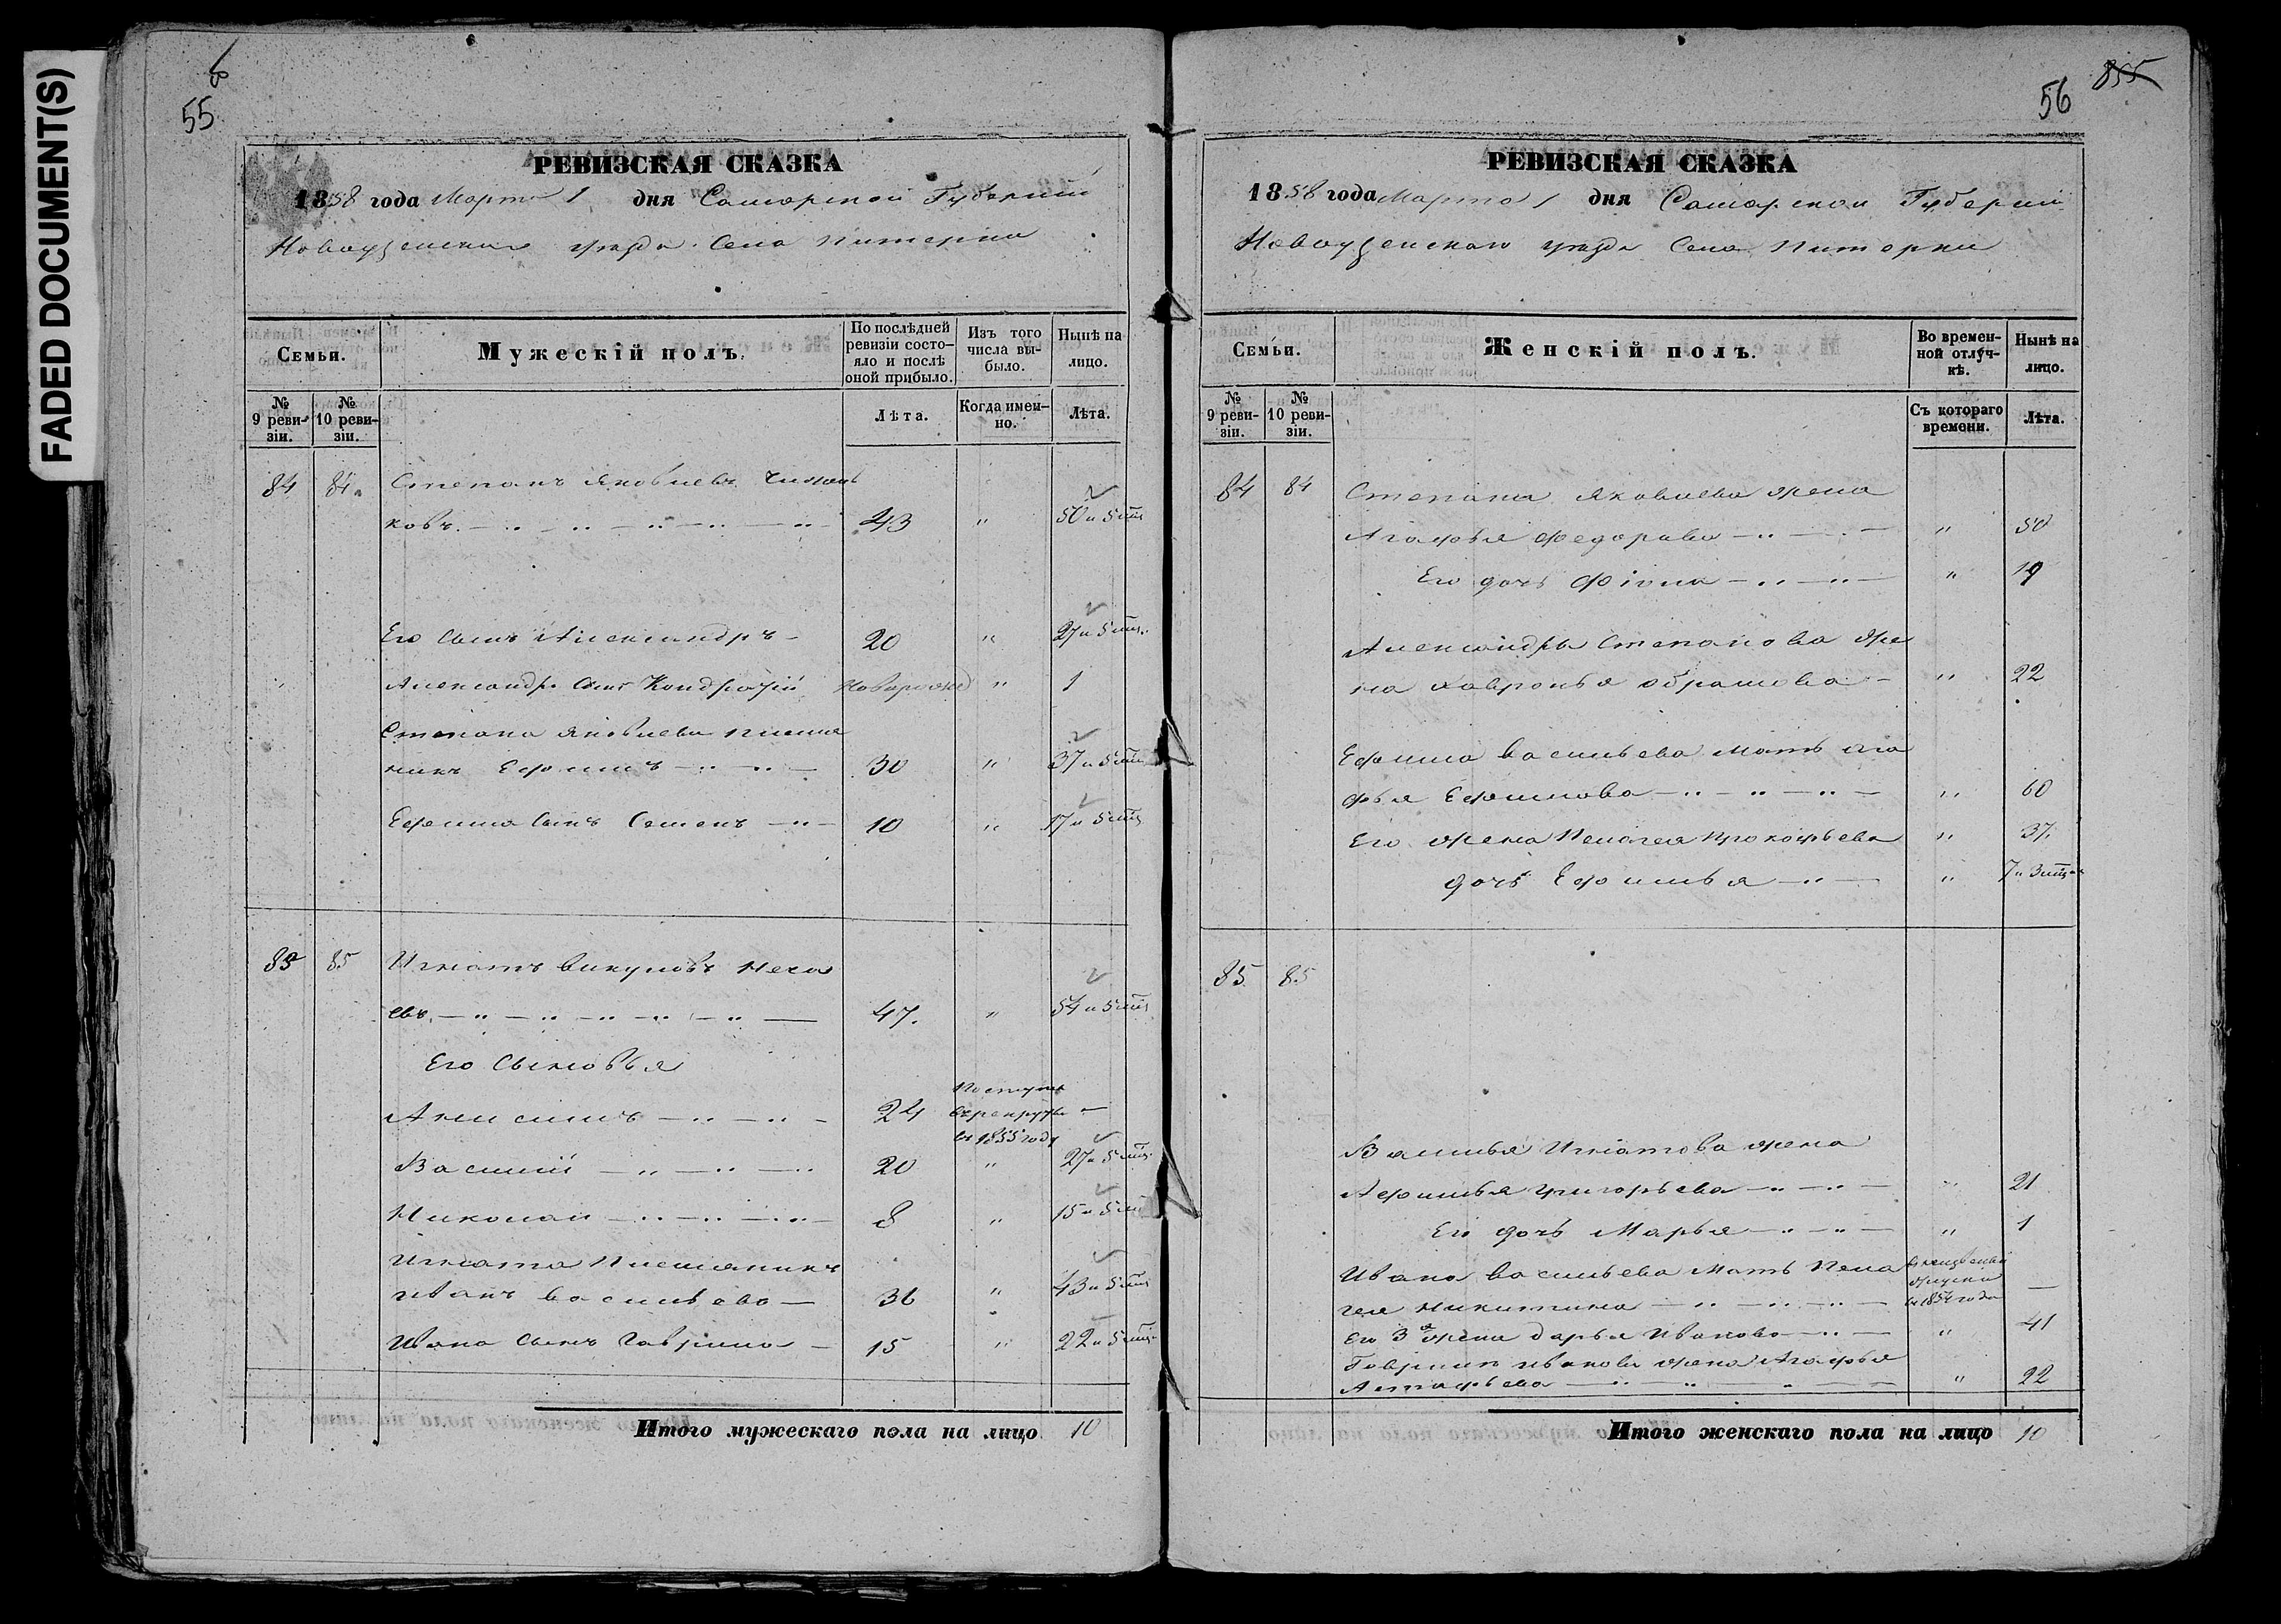 FADED DOCUMENT(S)
55
РЕВИЗСКАЯ СКАЗКА
1858 года Марта 1 дня Самарской Губернии
Новоузенскаго уезда Села Питерки
Семьи.
Мужескій полъ.
По послѣдней ревизіи состояло и послѣ оной прибыло.
Изъ того числа выбыло.
Нынѣ на лицо.
№ 9 ревизіи.
№ 10 ревизіи.
Лѣта.
Когда именно.
Лѣта.
84 84 Степанъ Яковлевъ
ковъ 43 " 50 и 5 мѣ
Его сынъ Александръ 20 " 27 и 5 мѣ
Александр. Сынъ Кондратій Новорожд " 1
Степана Яковлева племян
никъ Ефимъ 30 " 37 и 5 мѣ
Ефима Сынъ Семенъ 10 " 17 и 5 мѣ
85 85 Игнатъ Викуловъ Неча
евъ 47. " 54 и 5 мѣ
Его Сыновья
Анисимъ 24 Поступил в рекруты в 1855 году —
Василій 20 " 27 и 5 мѣ
Николай 8 " 15 и 5 м
Игната Племяникъ
Иванъ Васильевъ 36 " 43 и 5 мѣ
Ивана сынъ Гаврила 15 " 22 и 5 мѣ
Итого мужескаго пола на лицо 10
56 855
РЕВИЗСКАЯ СКАЗКА
1858 года Марта 1 дня Самарской Губернии
Новоузенскаго уезда Села Питерки
Семьи.
Женскій полъ.
Во временной отлучкѣ.
Нынѣ на лицо.
№ 9 ревизіи.
№ 10 ревизіи.
Съ котораго времени.
Лѣта.
84 84 Степана Яковлева жена
Агафья Федорова " 50
Его дочь Фіона " 19
Александры Степанова же
на Хавронья Абрамова " 22
Ефима Васильева мать Ага
фья Ефимова " 60
Его жена Пелагея Прокофьева " 37.
дочь Ефимья " 7 и 3 мѣ
85 85
Василья Игнатова жена
Афимья Григорьева " 21
Его дочь Марья " 1
Ивана Васильева мать Пела
гея Никитина в 1854 года —
Его 3я жена Дарья Иванова " 41
Гаврила Иванова жена Агафья
Астафьева " 22
Итого женскаго пола на лицо 10